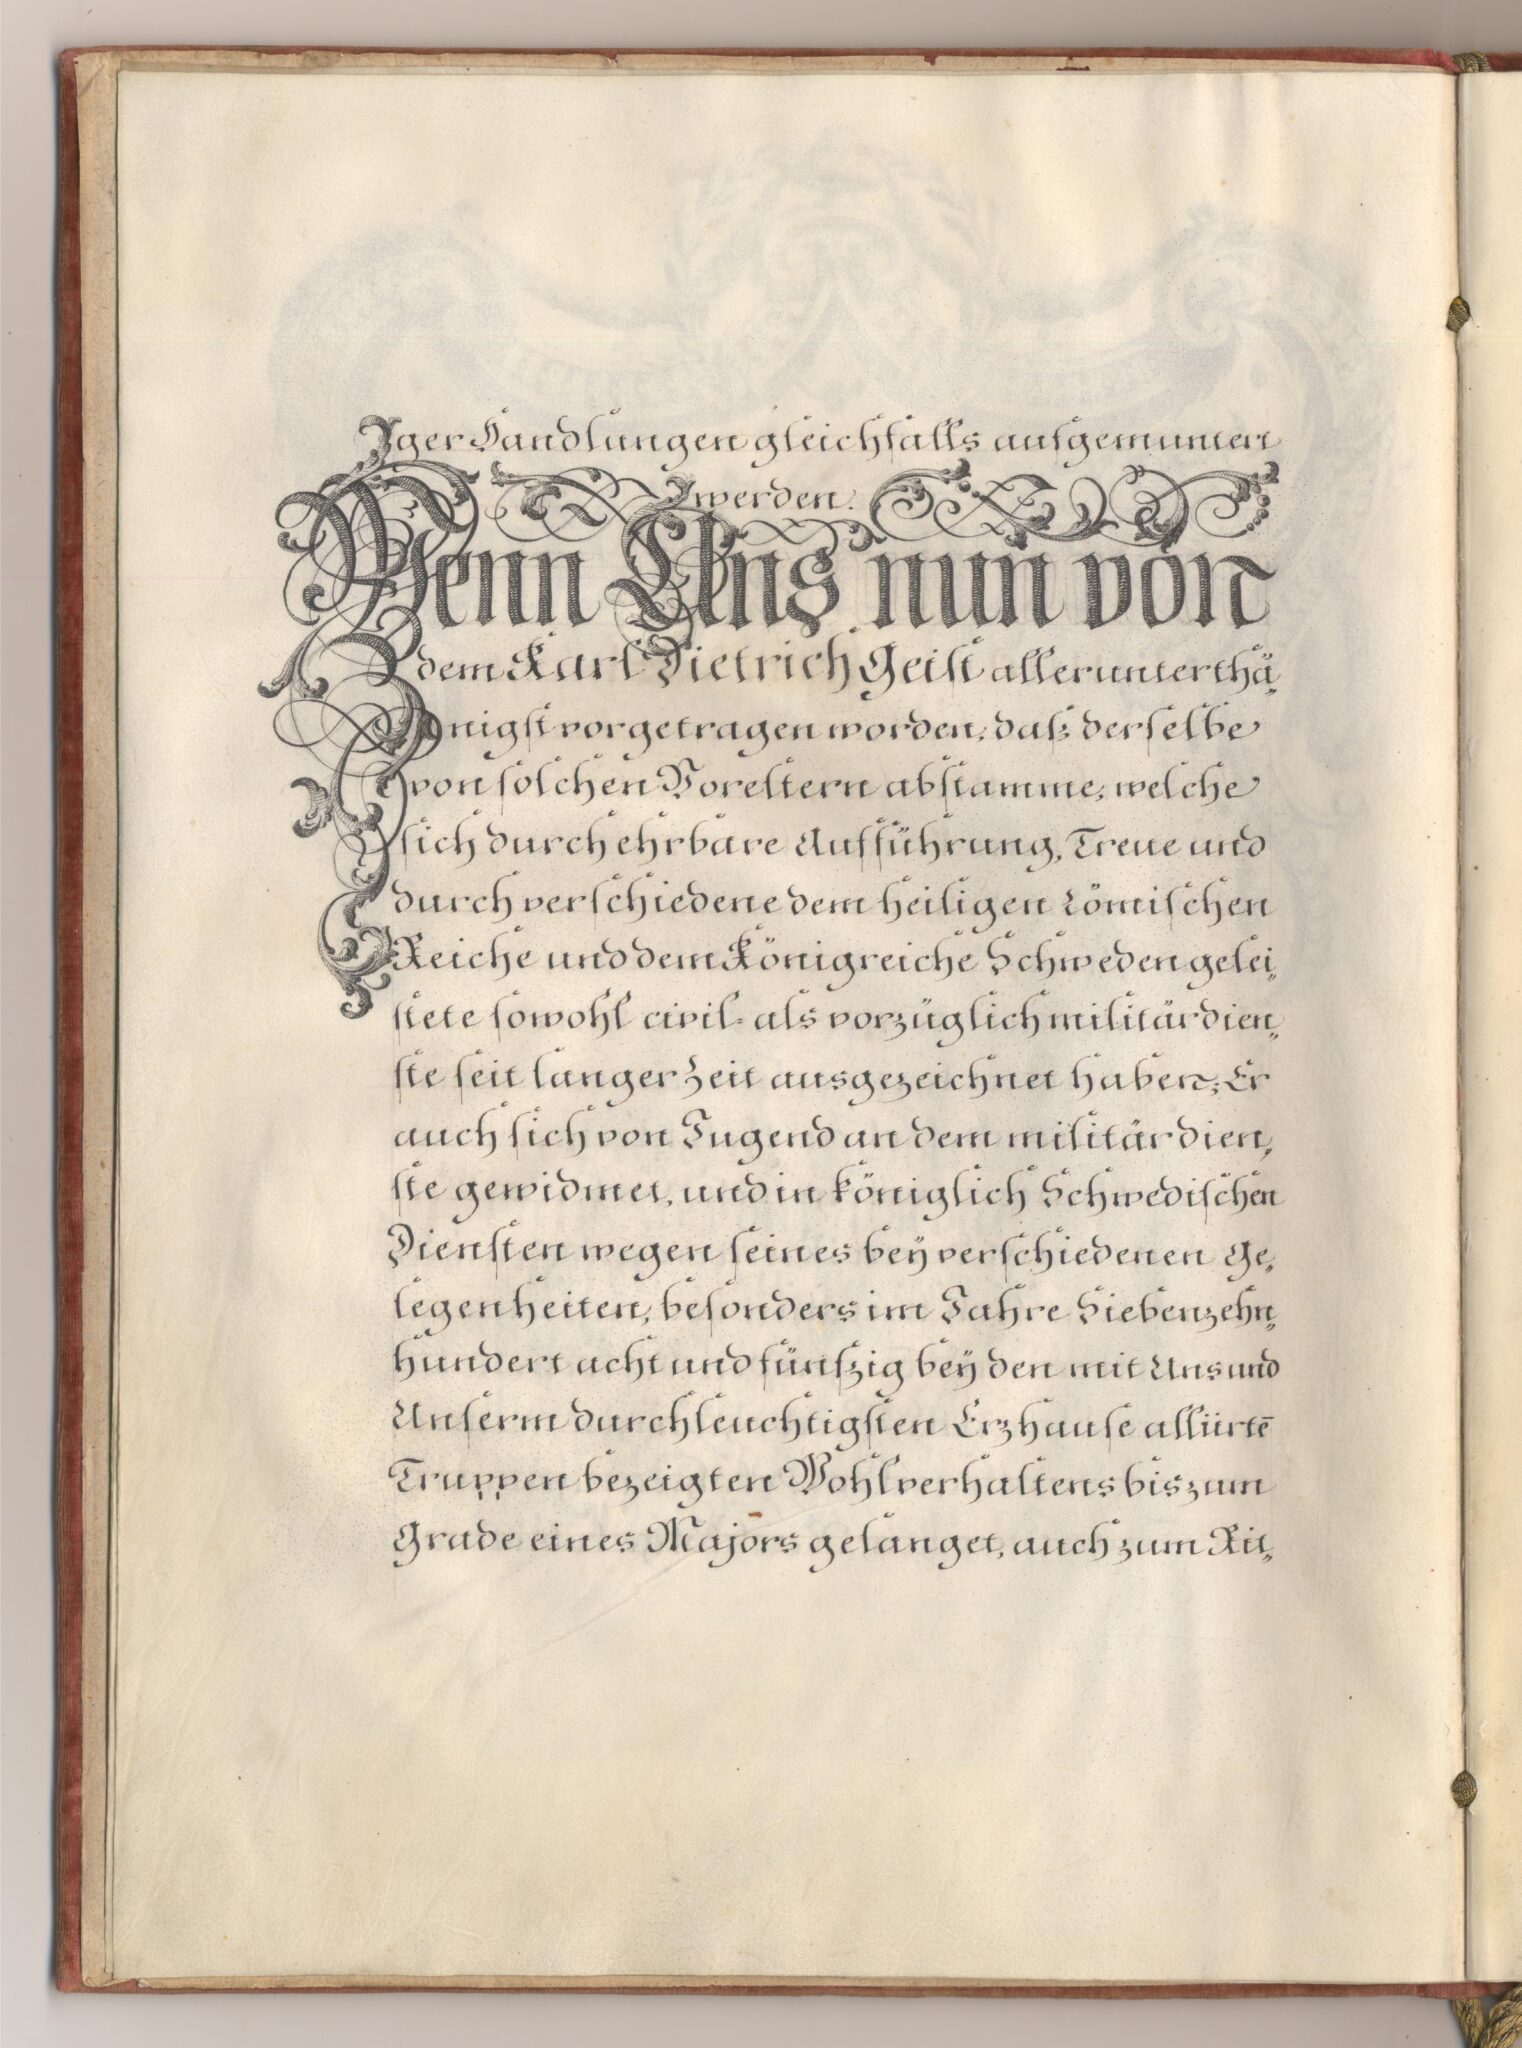 ger Handlungen gleichfalls aufgemuntert
werden.
Wenn Uns nun von
dem Karl Dietrich Geist allerunterthä-
nigst vorgetragen worden, daß derselbe
von solchen Voreltern abstamme, welche
sich durch ehrbare Aufführung, Treue und
durch verschiedene dem heiligen Römischen
Reiche und dem Königreiche Schweden gelei-
stete sowohl civil- als vorzüglich militärdien-
ste seit langer Zeit ausgezeichnet haben; Er
auch sich von Jugend an dem militärdien-
ste gewidmet, und in königlich Schwedischen
Diensten wegen seines bey verschiedenen Ge-
legenheiten, besonders im Jahre Siebenzehn-
hundert acht und fünfzig bey den mit Uns und
Unserm durchleuchtigsten Erzhause alliirtē
Truppen bezeigten Wohlverhaltens bis zum
Grade eines Majors gelanget, auch zum Rit-